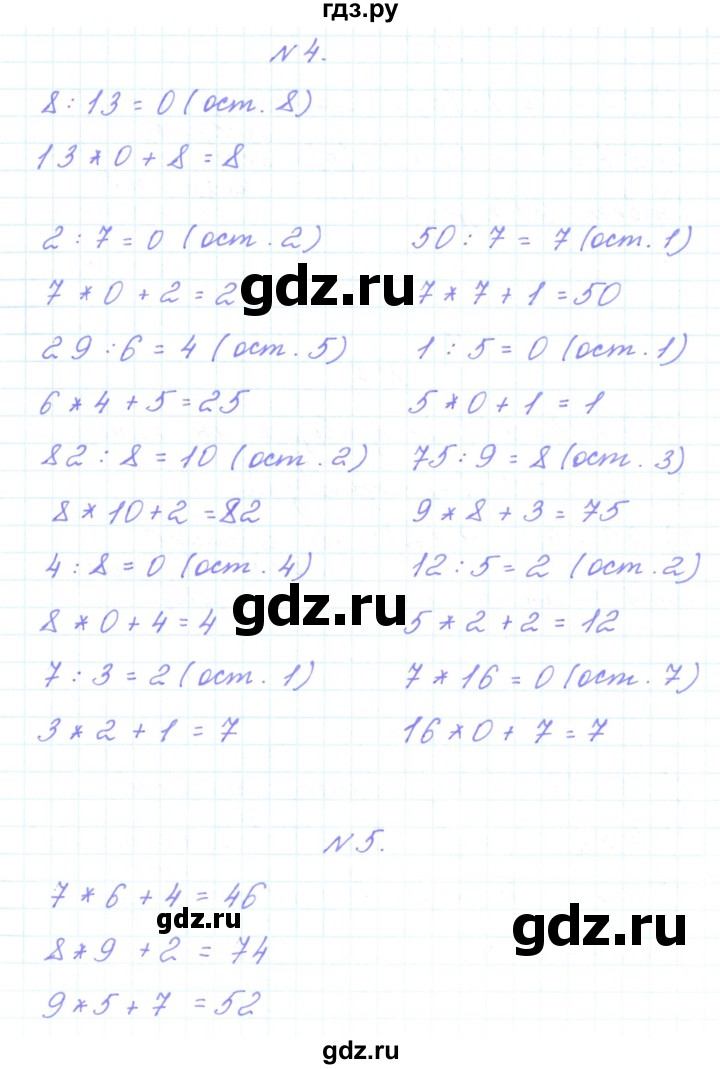 гдз.ру
N 4.
8 : 13 = 0 (ост. 8)
13 * 0 + 8 = 8
2 : 7 = 0 (ост. 2)
7 * 0 + 2 = 2
29 : 6 = 4 (ост. 5)
6 * 4 + 5 = 25
82 : 8 = 10 (ост. 2)
8 * 10 + 2 = 82
4 : 8 = 0 (ост. 4)
8 * 0 + 4 = 4
7 : 3 = 2 (ост. 1)
3 * 2 + 1 = 7
50 : 7 = 7 (ост. 1)
7 * 7 + 1 = 50
1 : 5 = 0 (ост. 1)
5 * 0 + 1 = 1
75 : 9 = 8 (ост. 3)
9 * 8 + 3 = 75
12 : 5 = 2 (ост. 2)
5 * 2 + 2 = 12
7 * 16 = 0 (ост. 7)
16 * 0 + 7 = 7
gdz.ru
gdz.ru
N 5.
7 * 6 + 4 = 46
8 * 9 + 2 = 74
9 * 5 + 7 = 52
gdz.ru
gdz.ru
gdz.ru